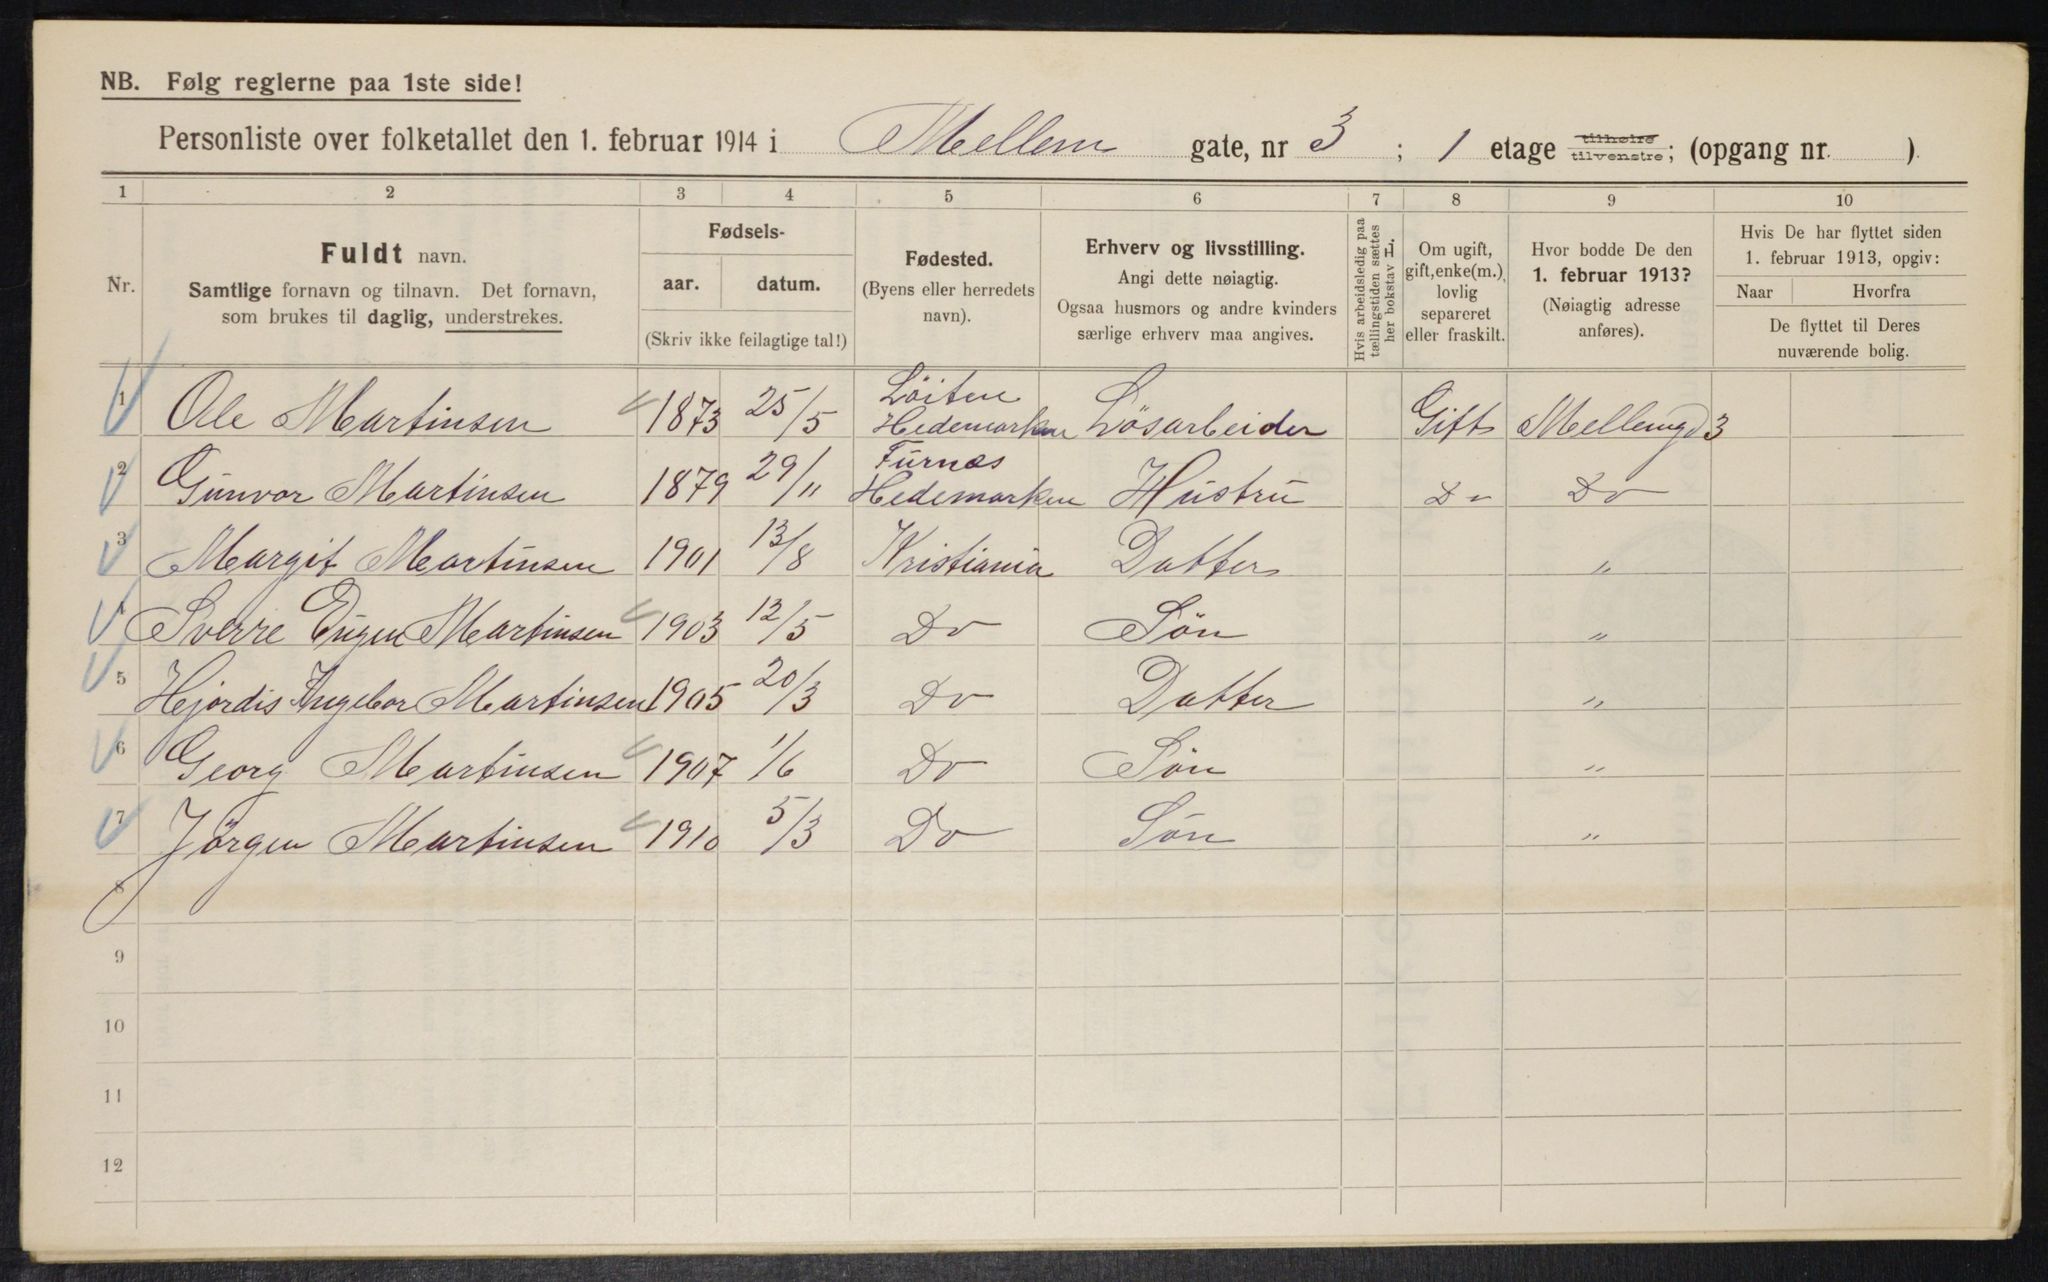 NB. Følg reglerne paa 1ste side!
Personliste over folketallet den 1. februar 1914 i Mellem gate, nr 3 ; 1 etage tilhøire tilvenstre; (opgang nr. ).
1 2 3 4 5 6 7 8 9 10
Nr.
Fuldt navn.
Samtlige fornavn og tilnavn. Det fornavn,
som brukes til daglig, understrekes.
Fødsels-
aar. datum.
(Skriv ikke feilagtige tal!)
Fødested.
(Byens eller herredets
navn).
Erhverv og livsstilling.
Angi dette nøiagtig.
Ogsaa husmors og andre kvinders
særlige erhverv maa angives.
Hvis arbeidsledig paa
tællingstiden sættes
her bokstav L.
Om ugift,
gift, enke(m.),
lovlig
separeret
eller fraskilt.
Hvor bodde De den
1. februar 1913?
(Nøiagtig adresse
anføres).
Hvis De har flyttet siden
1. februar 1913, opgiv:
Naar Hvorfra
De flyttet til Deres
nuværende bolig.
1 Ole Martinsen 1873 25/5 Löiten Hedemarken Lösarbeider Gift Mellemgd 3
2 Gunvor Martinsen 1879 29/11 Furnæs Hedemarken Hustru Do Do
3 Margit Martinsen 1901 13/8 Kristiania Datter "
4 Sverre Eugen Martinsen 1903 12/5 Do Sön "
5 Hjordis Ingebor Martinsen 1905 20/3 Do Datter "
6 Georg Martinsen 1907 1/6 Do Sön "
7 Jörgen Martinsen 1910 5/3 Do Sön "
8
9
10
11
12